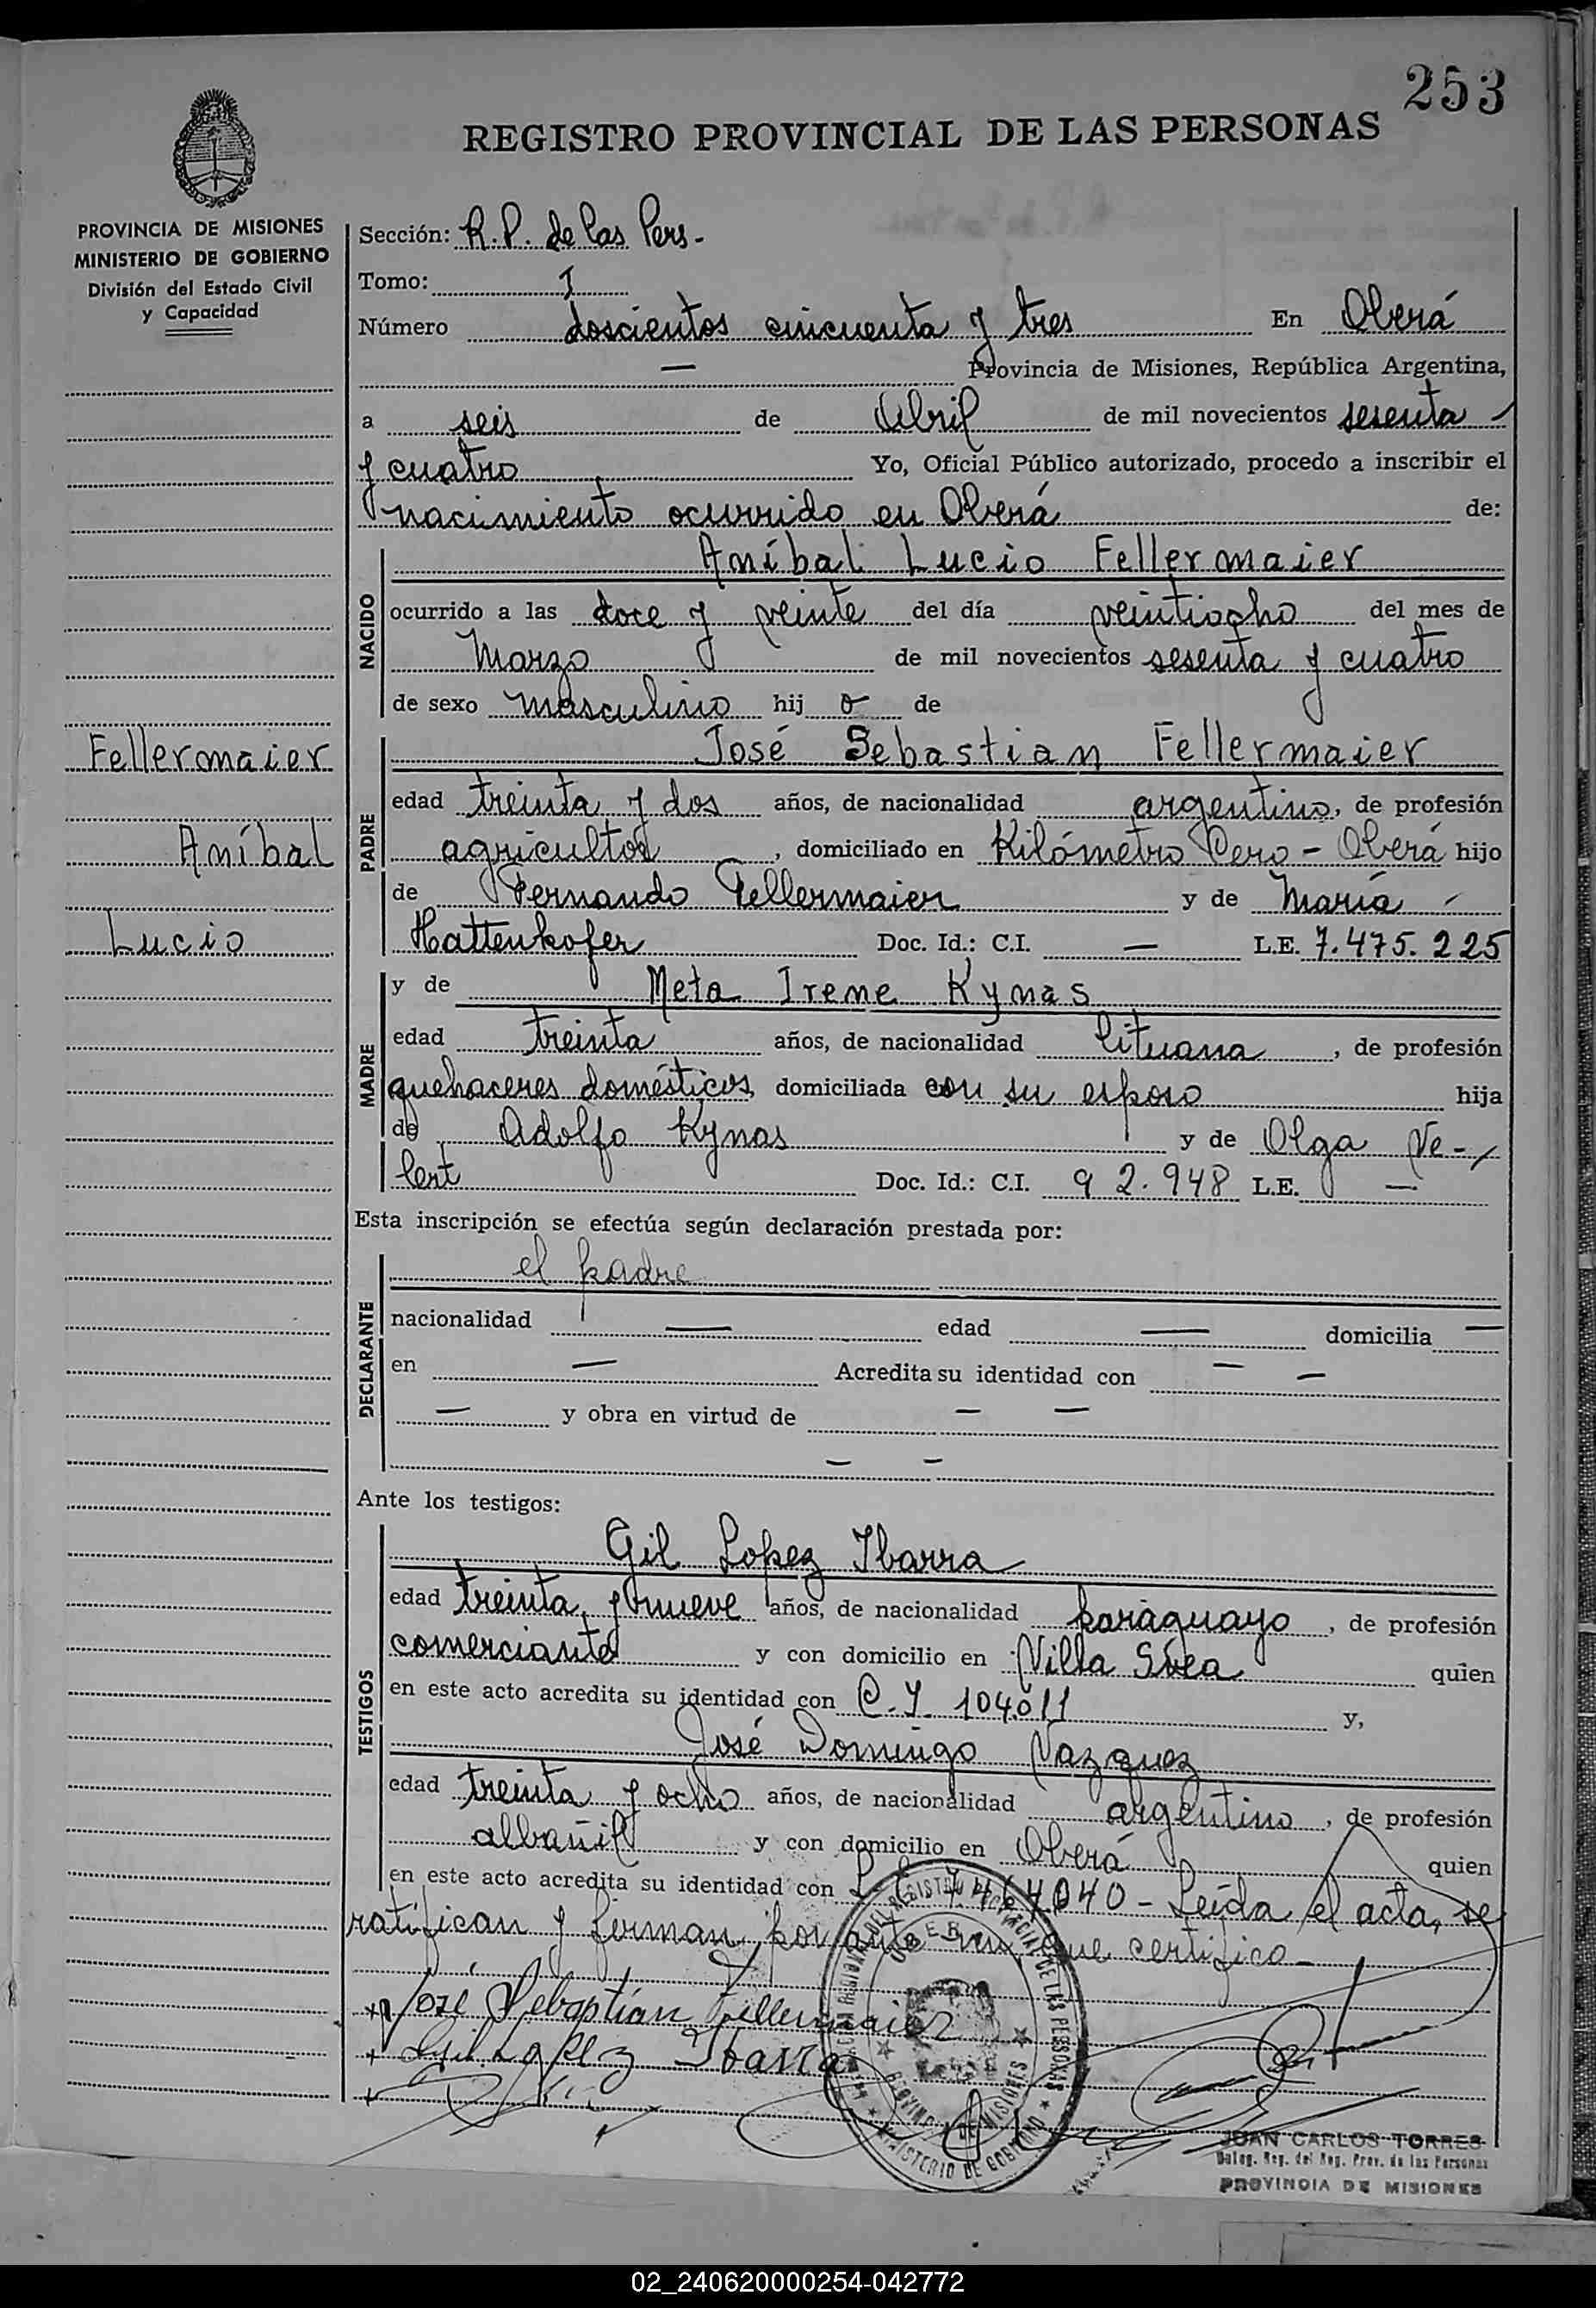 253
REGISTRO PROVINCIAL DE LAS PERSONAS
PROVINCIA DE MISIONES
MINISTERIO DE GOBIERNO
División del Estado Civil
y Capacidad
Sección: R.P. de las Pers.
Tomo: I
Número doscientos cincuenta y tres En Oberá
— Provincia de Misiones, República Argentina,
a seis de Abril de mil novecientos sesenta
y cuatro Yo, Oficial Público autorizado, procedo a inscribir el
nacimiento ocurrido en Oberá de:
NACIDO
Aníbal Lucio Fellermaier
ocurrido a las doce y veinte del día veintiocho del mes de
Marzo de mil novecientos sesenta y cuatro
de sexo masculino hij o de
Fellermaier
Aníbal
Lucio
PADRE
José Sebastian Fellermaier
edad treinta y dos años, de nacionalidad argentino, de profesión
agricultor, domiciliado en Kilómetro Cero - Oberá hijo
de Fernando Fellermaier y de María
Hattenkofer Doc. Id.: C.I. — L.E. 7.475.225
MADRE
y de Meta Irene Kynas
edad treinta años, de nacionalidad lituana, de profesión
quehaceres domésticos domiciliada con su esposo hija
de Adolfo Kynas y de Olga Ve-
lent Doc. Id.: C.I. 92.948 L.E. —
Esta inscripción se efectúa según declaración prestada por:
DECLARANTE
el padre
nacionalidad — edad — domicilia —
en — Acredita su identidad con — —
— y obra en virtud de — —
— —
Ante los testigos:
TESTIGOS
Gil Lopez Ibarra
edad treinta y nueve años, de nacionalidad paraguayo, de profesión
comerciante y con domicilio en Villa Svea quien
en este acto acredita su identidad con C.I. 104.011 y,
José Domingo Vazquez
edad treinta y ocho años, de nacionalidad argentino, de profesión
albañil y con domicilio en Oberá quien
en este acto acredita su identidad con - Leída el acta, se
ratifican y firman por ante mi, que certifico -
José Sebastian Fellermaier
Gil Lopez Ibarra
JUAN CARLOS TORRES
Deleg. Reg. del Reg. Prov. de las Personas
PROVINCIA DE MISIONES
02_240620000254-042772